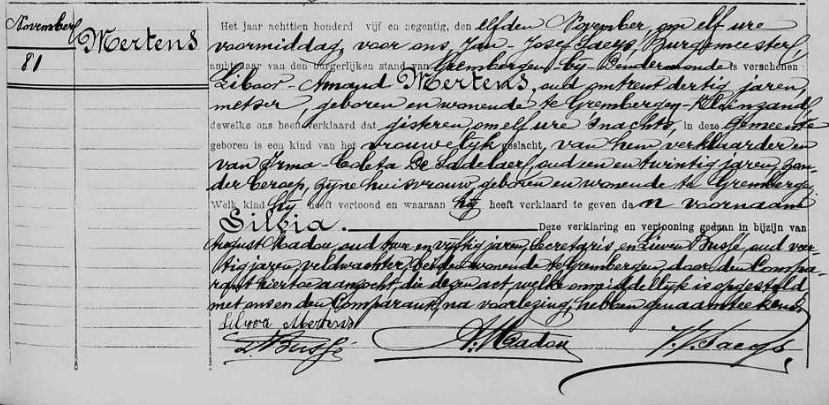 November
81
Mertens
Het jaar achttien honderd vijf en negentig, den elfden November, om elf ure
voormiddag, voor ons, Jan-Josef Saeys, Burgemeester,
ambtenaar van den burgerlijken stand van Grembergen bij Dendermonde is verschenen:
Liboor-Amand Mertens, oud omtrent dertig jaren,
metser, geboren en wonende te Grembergen-Kleinzand
dewelke ons heeft verklaard dat gisteren om elf ure snachts, in deze Gemeente
geboren is een kind van het vrouwelyk geslacht, van hem verklaarder en
van Irma-Coleta De Sadelaer, oud een en twintig jaren, zon-
der beroep, zyne huisvrouw, geboren en wonende te Grembergen.
Welk kind hij heeft vertoond en waaraan hij heeft verklaard te geven den voornaam
Silvia. Deze verklaring en vertooning gedaan in bijzijn van
August Madou, oud twee en vijftig jaren, Secretaris, en Lieven Bussjé, oud veer-
tig jaren, veldwachter, beiden wonende te Grembergen, door den Compa-
rant hiertoe aanzocht, die dezen act, welke onmiddellyk is opgesteld
met ons en den Comparant, na voorlezing, hebben genaamteekend.
Liboor Mertens
L. Bussjé A. Madou J. J. Saeys